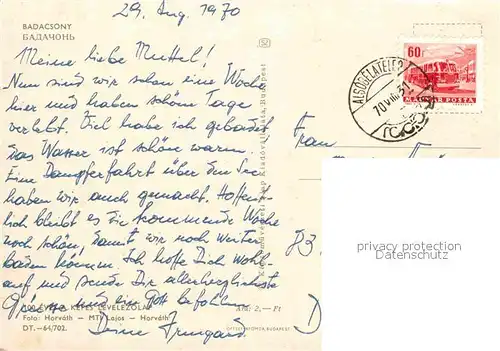 29. Aug. 1970
BADACSONY
БАДАЧОНЬ
Meine liebe Muttel!
Nun sind wir schon eine Woche
hier und haben schöne Tage
verlebt. Viel habe ich gebadet
das Wasser ist schön warm.
Eine Dampferfahrt über den See
haben wir auch gemacht. Hoffent-
lich bleibt es die kommende Woche
noch schön, damit wir noch weiter
baden können. Ich hoffe Dich wohl-
auf und sende Dir allerherzlichste
Grüsse und ein Gott befohlen
Deine Irmgard.
KÉPES LEVELEZŐLAP
Foto: Horváth — MTI Lajos — Horváth
DT.—64/702.
Ára: 2,— Ft
OFFSET NYOMDA, BUDAPEST
Képzőművészeti Alap Kiadóvállalata, Budapest
ALSÓBÉLATELEP
70 VIII 31
60f
MAGYAR POSTA
Frau
83.
D
privacy protection